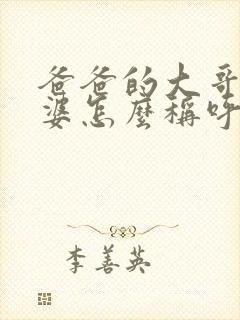 爸爸的大哥
婆怎麼稱呼
李善英